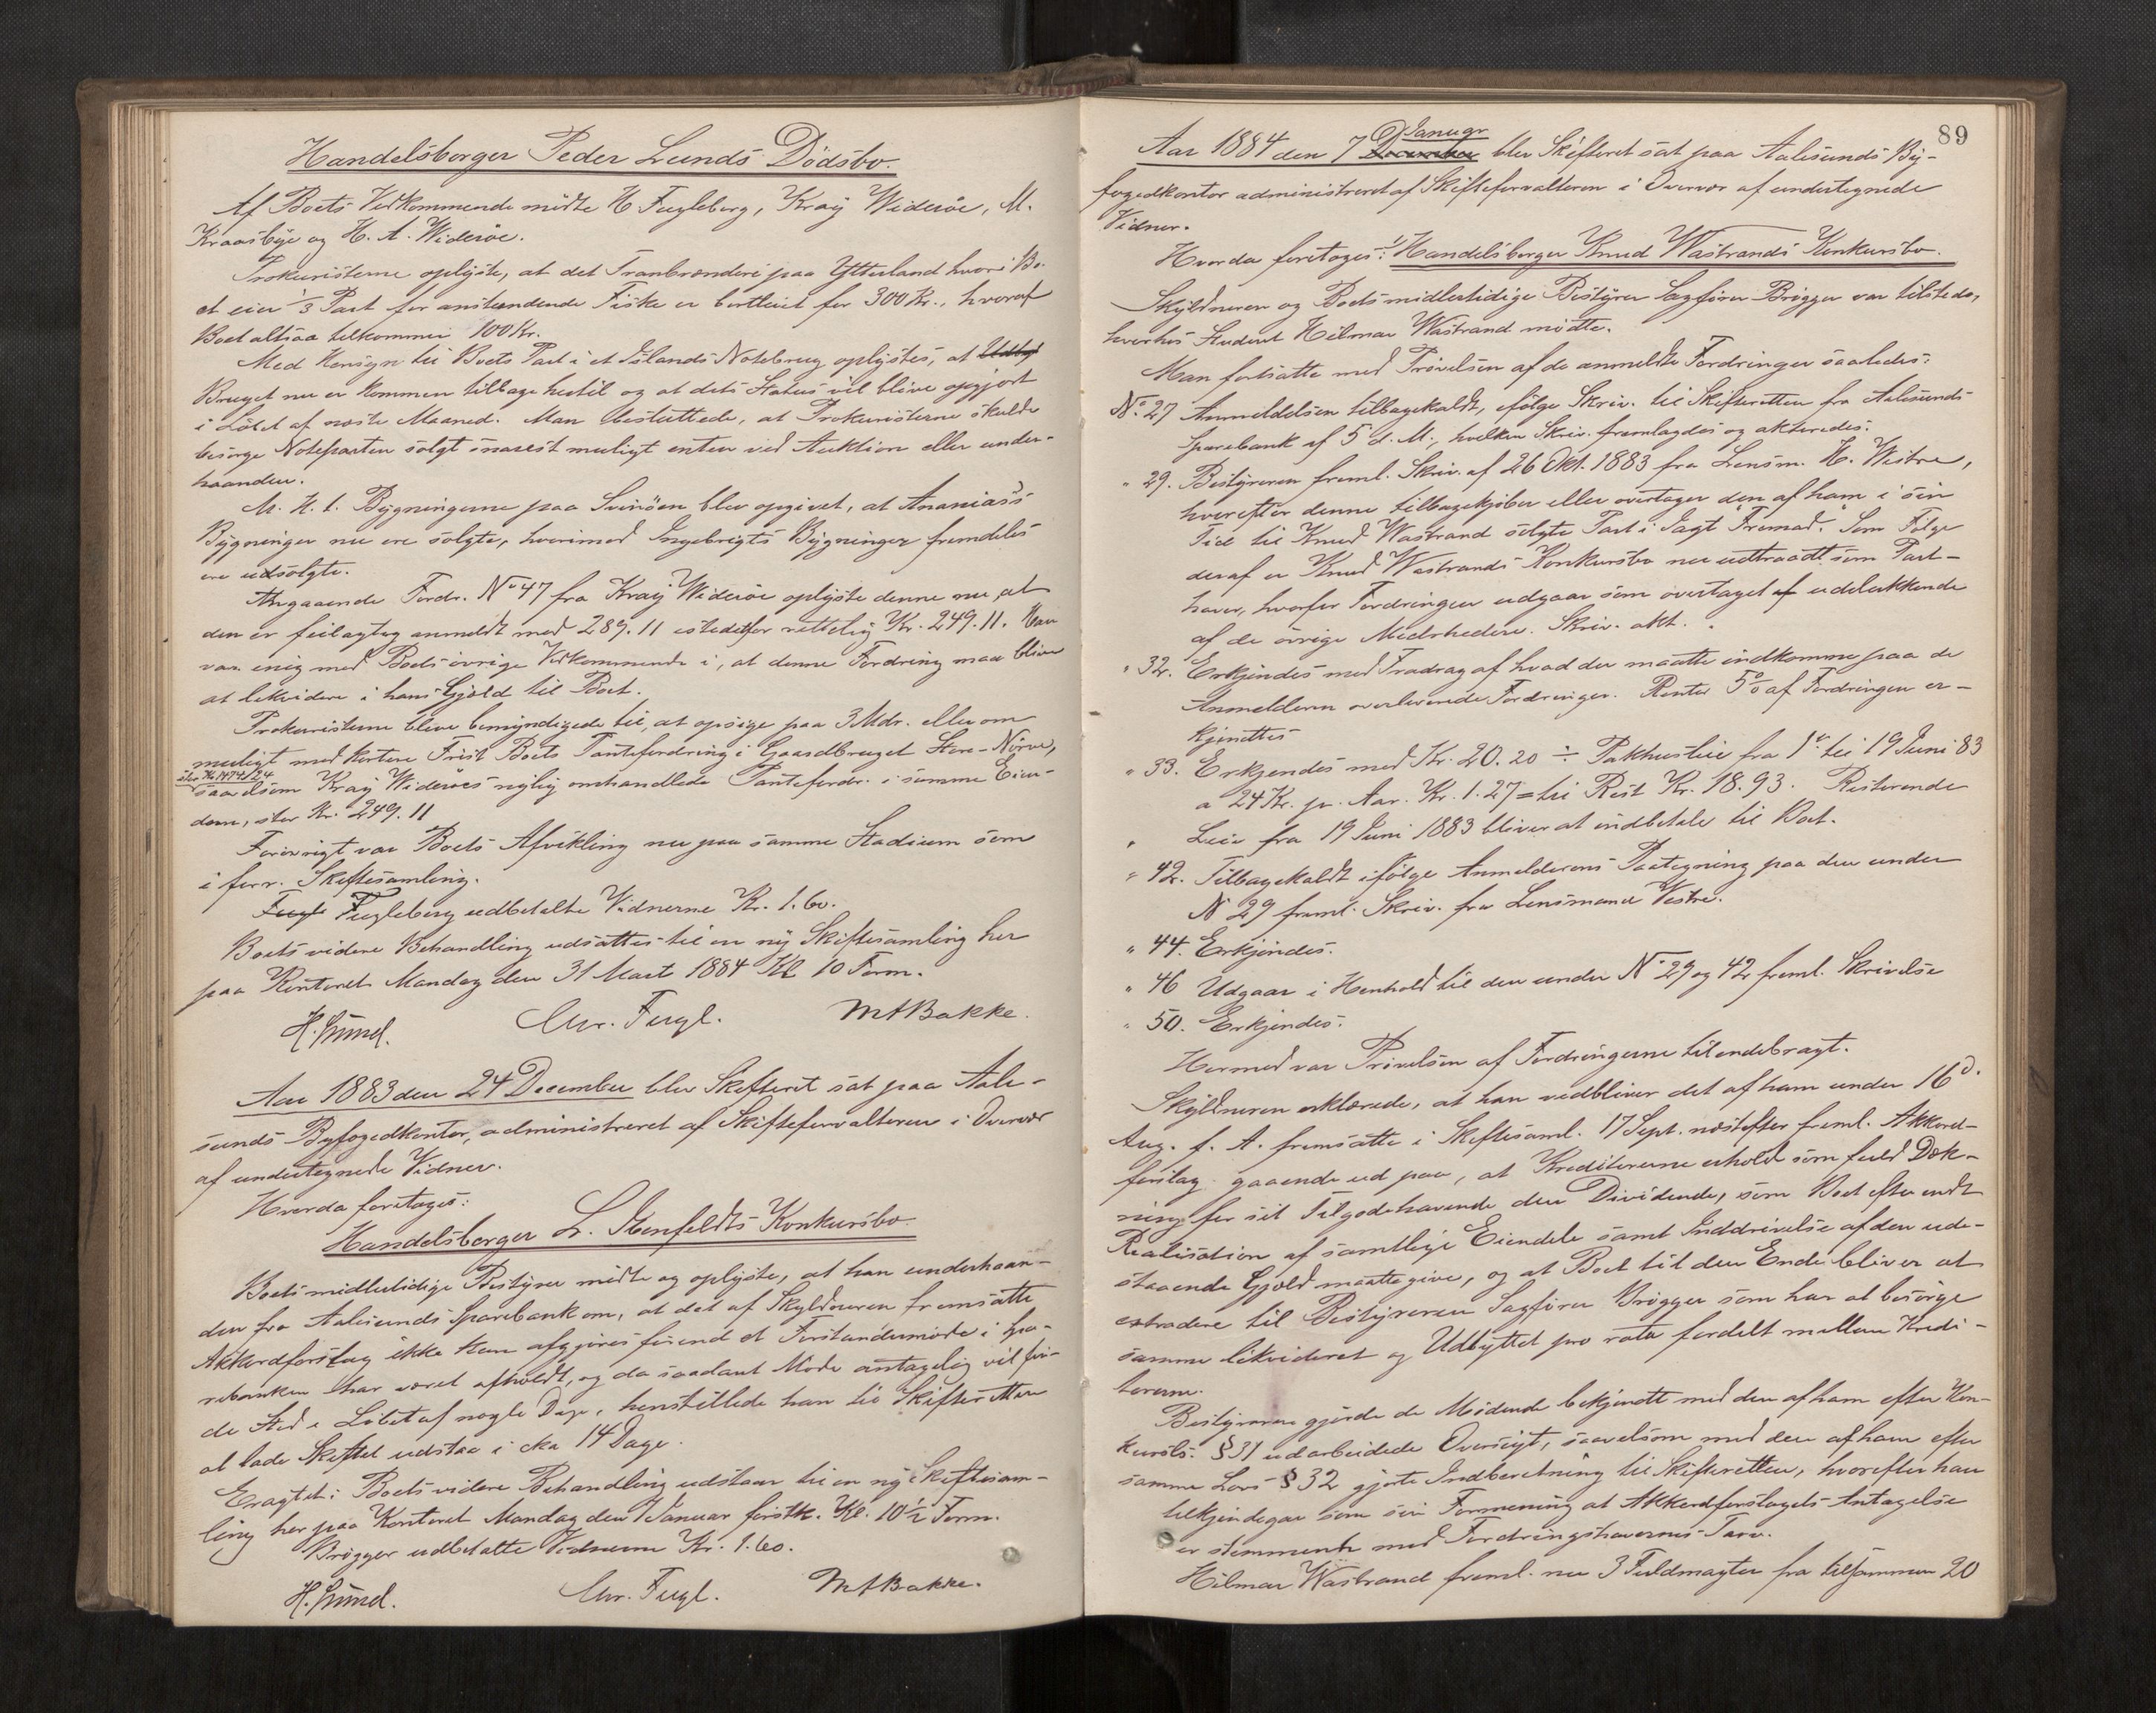 Handelsborger Peder Lunds Dödsbo.
Af Boets Vedkommende mödte H Fugleberg, Kraij Wideröe, M.
Kraasbye og H. A. Wideröe.
Prokuristerne oplyste, at det Tranbrænderi paa Ytterland hvori Bo-
et eier 1/3 Part for anstundende Fiske er bortleiet for 300 Kr., hvoraf
Boet altsaa tilkommer 100 Kr.
Med Hensyn til Boets Part i et Islands Notebrug oplystes, at Udbyt
Bruget nu er kommen tilbage hertil og at dets Status vil blive opgjort
i Löbet af næste Maaned. Man besluttede, at Prokuristerne skulde
besörge Noteparten solgt snarest muligt enten ved Auktion eller under-
haanden.
M. H. t. Bygningerne paa Svinöen blev opgivet, at Ananias's
Bygninger nu ere solgte, hvorimod Ingebrigts Bygninger fremdeles
ere usolgte.
Angaaende Fordr. No 47 fra Kraij Wideröe oplyste denne nu, at
den er feilagtig anmeldt med 289.11 istedetfor rettelig Kr. 249.11. Man
var enig med Boets övrige Vedkommende i, at denne Fordring maa blive
at likvidere i hans Gjæld til Boet.
Prokuristerne bleve bemyndigede til, at opsige paa 3 Mdr. eller om
muligt med kortere Frist Boets Pantefordring i Gaardbruget Store-Nörve,
stor Kr 1474/24
saavelsom Kraij Wideröes nylig omhandlede Pantefordr. i samme Eien-
dom, stor Kr. 249.11
Forövrigt var Boets Afvikling nu paa samme Stadium som
i forr. Skiftesamling.
Fugle Fugleberg udbetalte Vidnerne Kr. 1.60.
Boets videre Behandling udsattes til en ny Skiftesamling her
paa Kontoret Mandag den 31 Marts 1884 Kl 10 Form.
Chr. Fugl. MABakke.
Aar 1883 den 24 December blev Skifteret sat paa Aale-
sunds Byfogedkontor, administreret af Skifteforvalteren i Overvær
af undertegnede Vidner.
Hvorda foretages:
Handelsborger L. Stenfeldts Konkursbo.
Boets midlertidige Bestyrer mödte og oplyste, at han underhaan-
den fra Aalesunds Sparebank om, at det af Skyldneren fremsatte
Akkordforslag ikke kan afgjöres förend et Forstandermöde i Spa-
rebanken har været afholdt, og da saadant Möde antagelig vil fin-
de Sted i Löbet af nogle Dage, henstillede han til Skifteretten
at lade Skiftet udstaa i cka 14 Dage.
Eragtet: Boets videre Behandling udstaar til en ny Skiftesam-
ling her paa Kontoret Mandag den 7 Januar förstk. Kl. 10 1/2 Form.
Brögger udbetalte Vidnerne Kr. 1.60.
Chr. Fugl. MABakke.
89
Januar
Aar 1884 den 7 December blev Skifteret sat paa Aalesunds By-
fogedkontor administreret af Skifteforvalteren i Overvær af undertegnede
Vidner.
Hvorda foretages: 1/ Handelsborger Knud Wastrands Konkursbo.
Skyldneren og Boets midlertidige Bestyrer Sagförer Brögger var tilstede,
hvorhos Student Hilmar Wastrand mödte.
Man fortsatte med Prövelsen af de anmeldte Fordringer saaledes:
No. 27 Anmeldelsen tilbagekaldt, ifölge Skriv. til Skifteretten fra Aalesunds
Sparebank af 5 d. M., hvilken Skriv. fremlagdes og akteredes.
" 29. Bestyreren freml. Skriv. af 26 Okt. 1883 fra Lensm. H. Vestre,
hvorefter denne tilbagekjöber eller overtager den af ham i sin
Tid til Knud Wastrand solgte Part i Jagt "Fremad". Som Fölge
deraf er Knud Wastrands Konkursbo nu udtraadt som Part-
haver, hvorfor Fordringen udgaar som overtaget af udelukkende
af de övrige Medrhedere. Skriv. akt.
" 32. Erkjendes med Fradrag af hvad der maatte indkomme paa de
Anmelderen overleverede Fordringer. Renter 5% af Fordringen er-
kjendtes
" 33. Erkjendes med Kr. 20.20 ÷ Pakhusleie fra 1ste til 19 Juni 83
a 24 Kr. pr. Aar. Kr. 1.27 = til Rest Kr. 18.93. Resterende
" Leie fra 19 Juni 1883 bliver at indbetale til Boet.
" 42. Tilbagekaldt ifölge Anmelderens Paategning paa den under
N 29 freml. Skriv. fra Lensmand Vestre.
" 44. Erkjendes.
" 46 Udgaar i Henhold til den under No 29 og 42 freml. Skrivelse
" 50. Erkjendes.
Hermed var Prövelsen af Fordringerne tilendebragt.
Skyldneren erklærede, at han vedbliver det af ham under 16 d.
Aug. f. A. fremsatte i Skiftesaml. 17 Sept. næstefter freml. Akkord-
forslag gaaende ud paa, at Kreditorerne erhold som fuld Dæk-
ning for sit Tilgodehavende den Dividende, som Boet efter endt
Realisation af samtlige Eiendele samt Inddrivelse af den ude-
staaende Gjæld maatte give, og at Boet til den Ende bliver at
extradere til Bestyreren Sagförer Brögger som har at besörge
samme likvideret og Udbyttet pro rata fordelt mellem Kredi-
torerne.
Bestyreren gjorde de Mödende bekjendt med den af ham efter Kon-
kursls. § 31 udarbeidede Oversigt, saavelsom med den af ham efter
samme Lovs § 32 gjorte Indberetning til Skifteretten, hvorefter han
tilkjendegav som sin Formening at Akkordforslagets Antagelse
er stemmende med Fordringshavernes Tarv.
Hilmar Wastrand freml. nu 3 Fuldmagter fra tilsammen 20